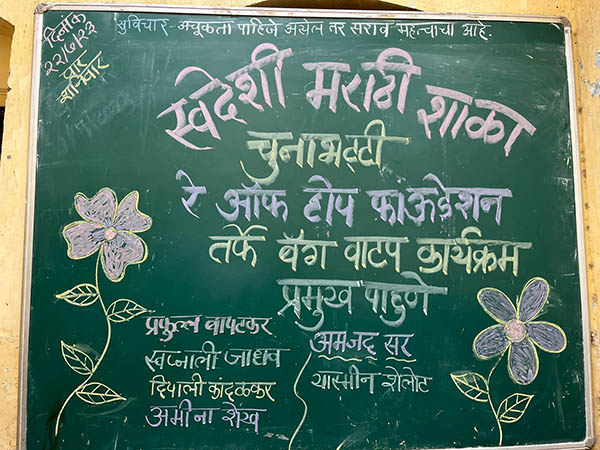 दिनांक
२२/७/२३
वार
शनिवार
सुविचार - अचूकता पाहिजे असेल तर सराव महत्वाचा आहे.
स्वदेशी मराठी शाळा
चुनाभट्टी
रे ऑफ होप फाऊंडेशन
तर्फे बॅग वाटप कार्यक्रम
प्रमुख पाहुणे
प्रफुल्ल वापटकर
स्वप्नाली जाधव
दिपाली काटळकर
अमीना शेख
अमजद सर
यास्मीन शेलोट